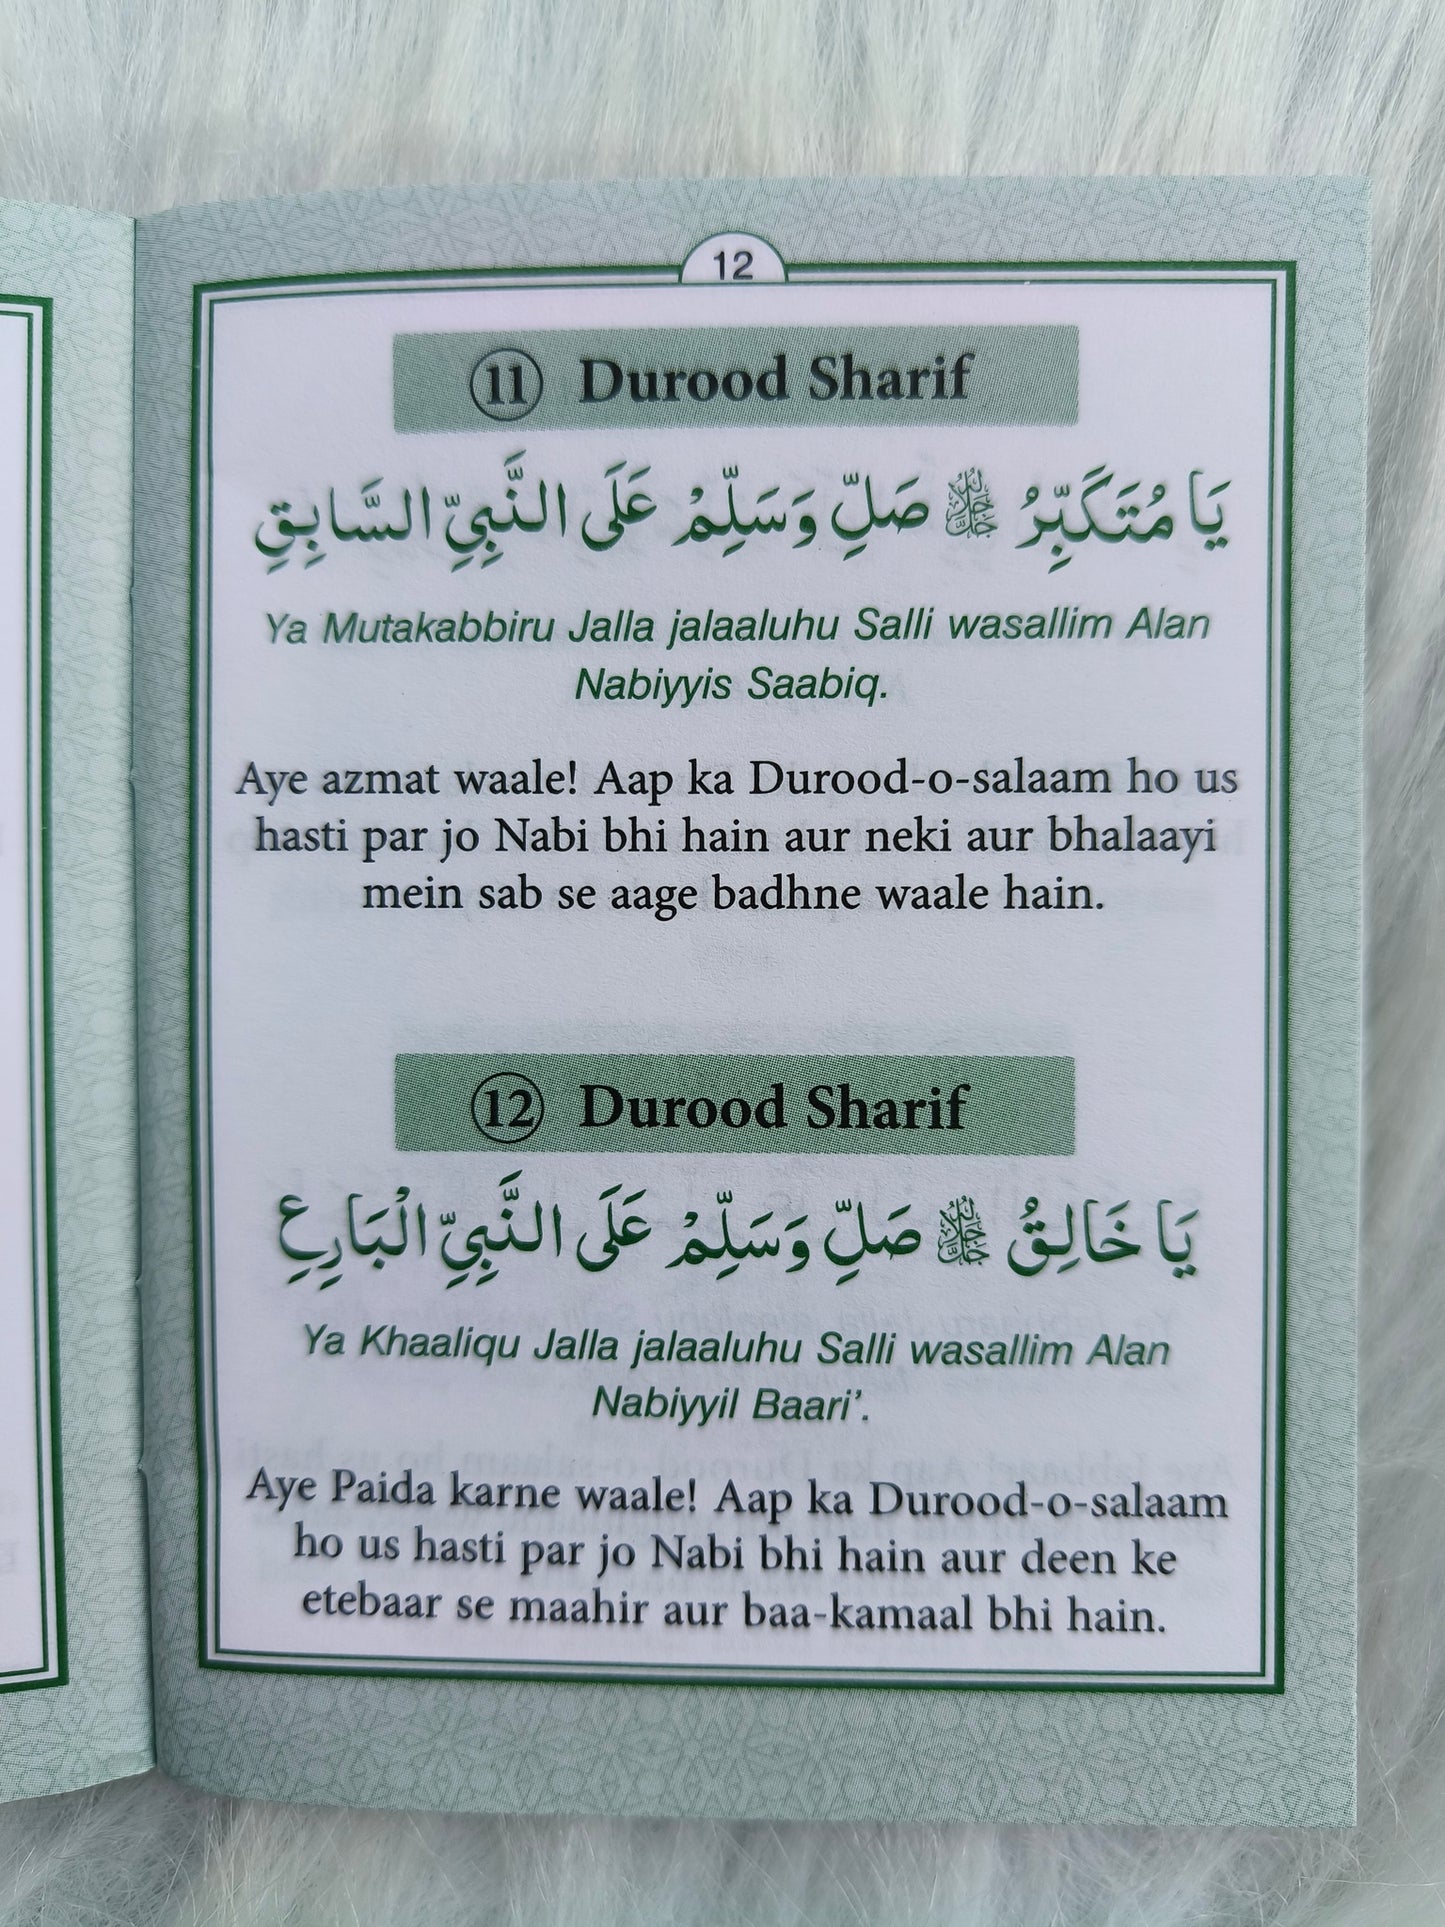 12
11 Durood Sharif
يَا مُتَكَبِّرُ ﷻ صَلِّ وَسَلِّمْ عَلَى النَّبِيِّ السَّابِقِ
Ya Mutakabbiru Jalla jalaaluhu Salli wasallim Alan
Nabiyyis Saabiq.
Aye azmat waale! Aap ka Durood-o-salaam ho us
hasti par jo Nabi bhi hain aur neki aur bhalaayi
mein sab se aage badhne waale hain.
12 Durood Sharif
يَا خَالِقُ ﷻ صَلِّ وَسَلِّمْ عَلَى النَّبِيِّ الْبَارِعِ
Ya Khaaliqu Jalla jalaaluhu Salli wasallim Alan
Nabiyyil Baari’.
Aye Paida karne waale! Aap ka Durood-o-salaam
ho us hasti par jo Nabi bhi hain aur deen ke
etebaar se maahir aur baa-kamaal bhi hain.